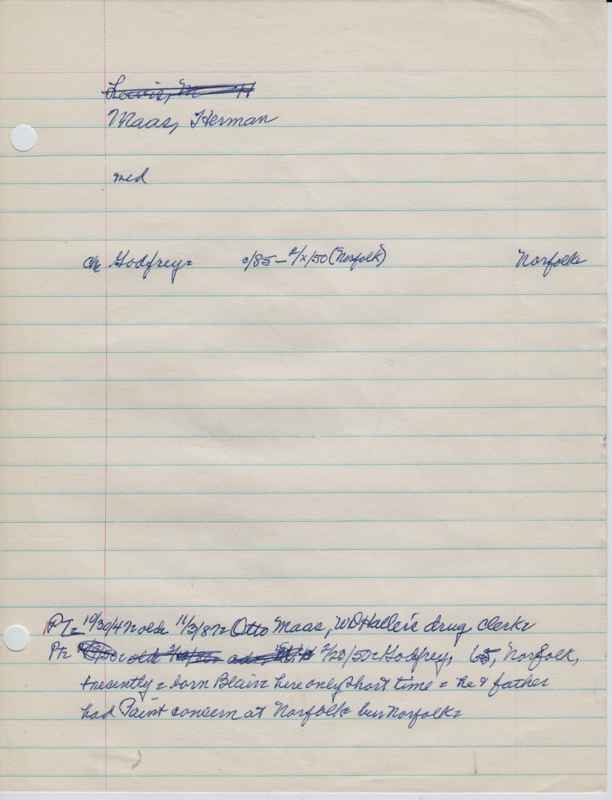 Lewis, M H
Maas, Herman
med
ch Godfrey= c/85 – 2/x/50 (Norfolk) Norfolk=
PT= 10/30/4 11/3/87= Otto Maas, WD Haller's drug clerk=
Pt= old 2/20/50= Godfrey, 65, Norfolk,
recently = born Blair= here only short time = he & father
had Paint concern at Norfolk= bur Norfolk=